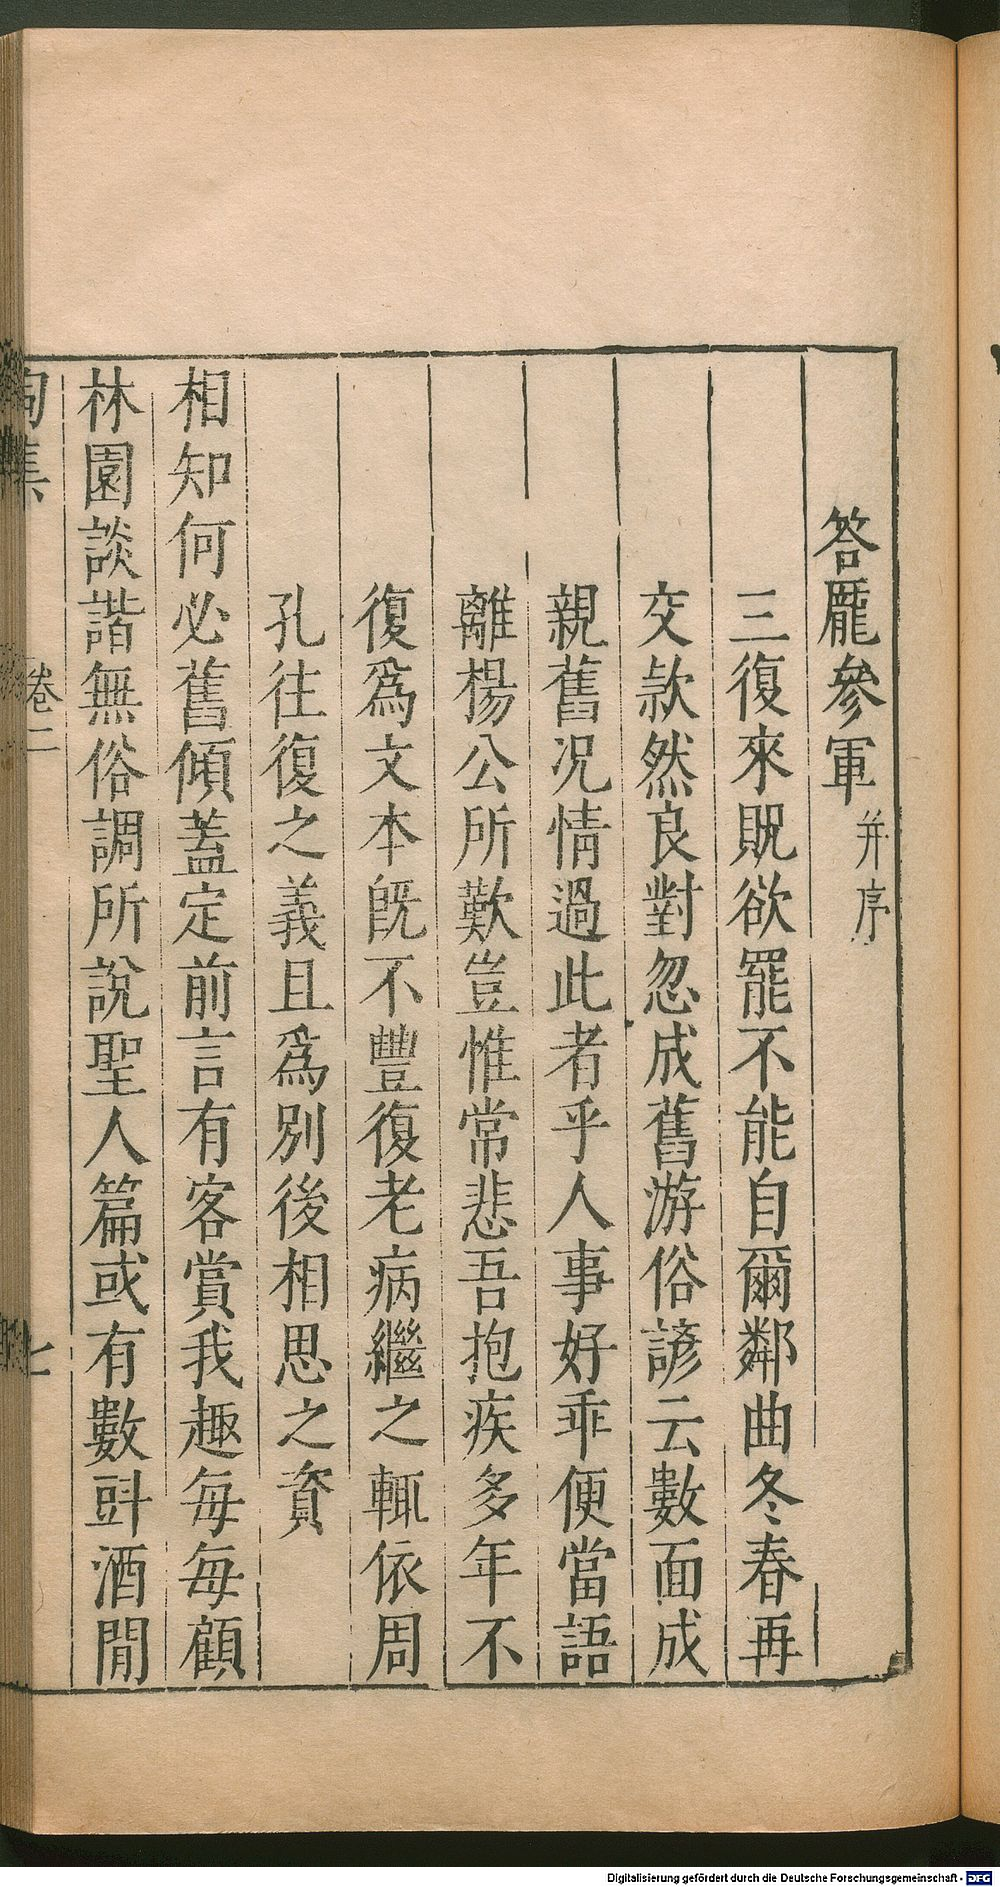 答龐參軍 并序
三復來貺欲罷不能自爾鄰曲冬春再
交款然良對忽成舊游俗諺云數面成
親舊況情過此者乎人事好乖便當語
離楊公所歎豈惟常悲吾抱疾多年不
復爲文本旣不豐復老病繼之輒依周
孔往復之義且爲別後相思之資
相知何必舊傾蓋定前言有客賞我趣每每顧
林園談諧無俗調所說聖人篇或有數斝酒閒
陶集
卷二
七
Digitalisierung gefördert durch die Deutsche Forschungsgemeinschaft - DFG